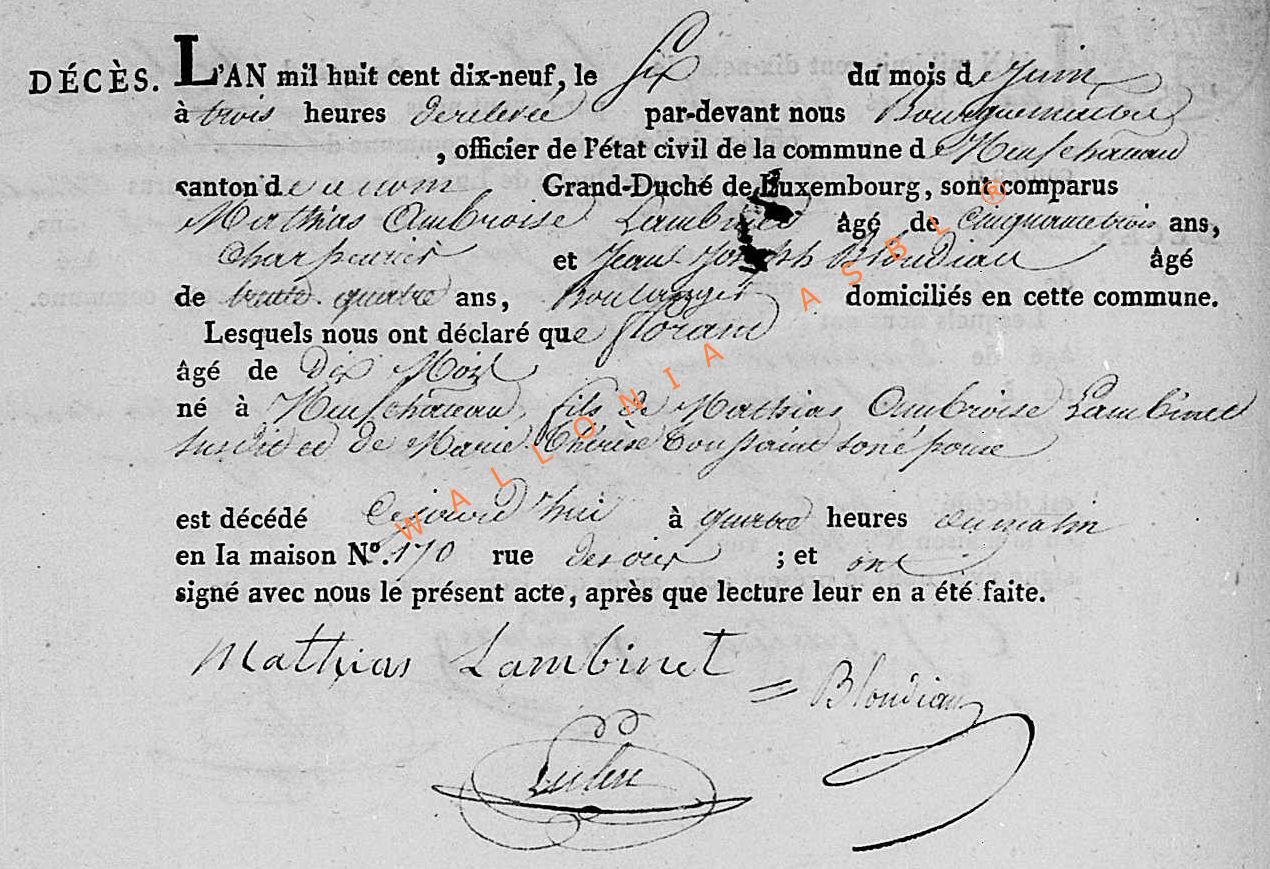 DÉCÈS. L'AN mil huit cent dix-neuf, le six du mois de Juin
à trois heures de relevée par-devant nous Bourguemaitre
, officier de l'état civil de la commune de Neufchateau
canton de ce nom Grand-Duché de Luxembourg, sont comparus
Mathias Ambroise Lambinet âgé de cinquante trois ans,
Charpentier et Jean Joseph Bloudiau âgé
de trente quatre ans, Boulanger domiciliés en cette commune.
Lesquels nous ont déclaré que florant
âgé de Dix Mois
né à Neufchateau, fils de Mathias Ambroise Lambinet
susdit et de Marie Thérèse Toussaint son épouse
est décédé Cejourd'hui à quatre heures du matin
en la maison N°. 170 rue ; et ont
signé avec nous le présent acte, après que lecture leur en a été faite.
Mathias Lambinet
Bloudiau
WALLONIA ASBL ®